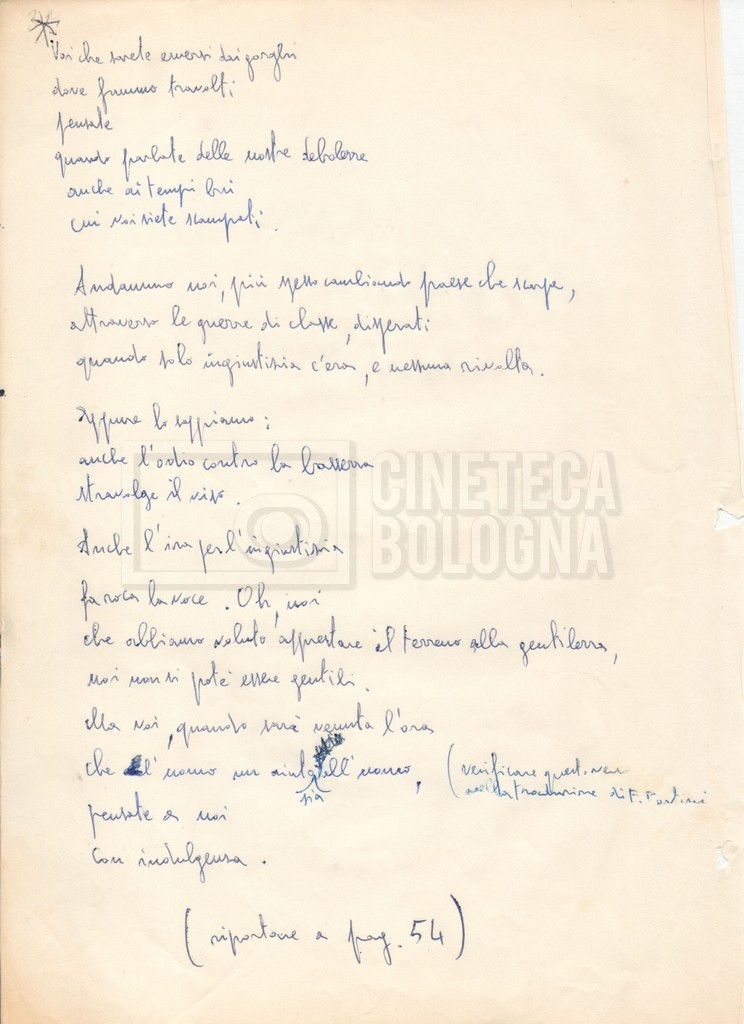 Voi che sarete emersi dai gorghi
dove fummo travolti
pensate
quando parlate delle nostre debolezze
anche ai tempi bui
cui voi siete scampati.
Andammo noi, più spesso cambiando paese che scarpe,
attraverso le guerre di classe, disperati
quando solo ingiustizia c'era, e nessuna rivolta.
Eppure lo sappiamo:
anche l'odio contro la bassezza
stravolge il viso.
Anche l'ira per l'ingiustizia
fa roca la voce. Oh, noi
che abbiamo voluto apprestare il terreno alla gentilezza,
noi non si poté essere gentili.
Ma voi, quando sarà venuta l'ora
che l'uomo un aiuto sia all'uomo, (verificare questi versi
nella traduzione di F. Fortini
pensate a noi
con indulgenza.
(riportare a pag. 54)
CINETECA
BOLOGNA